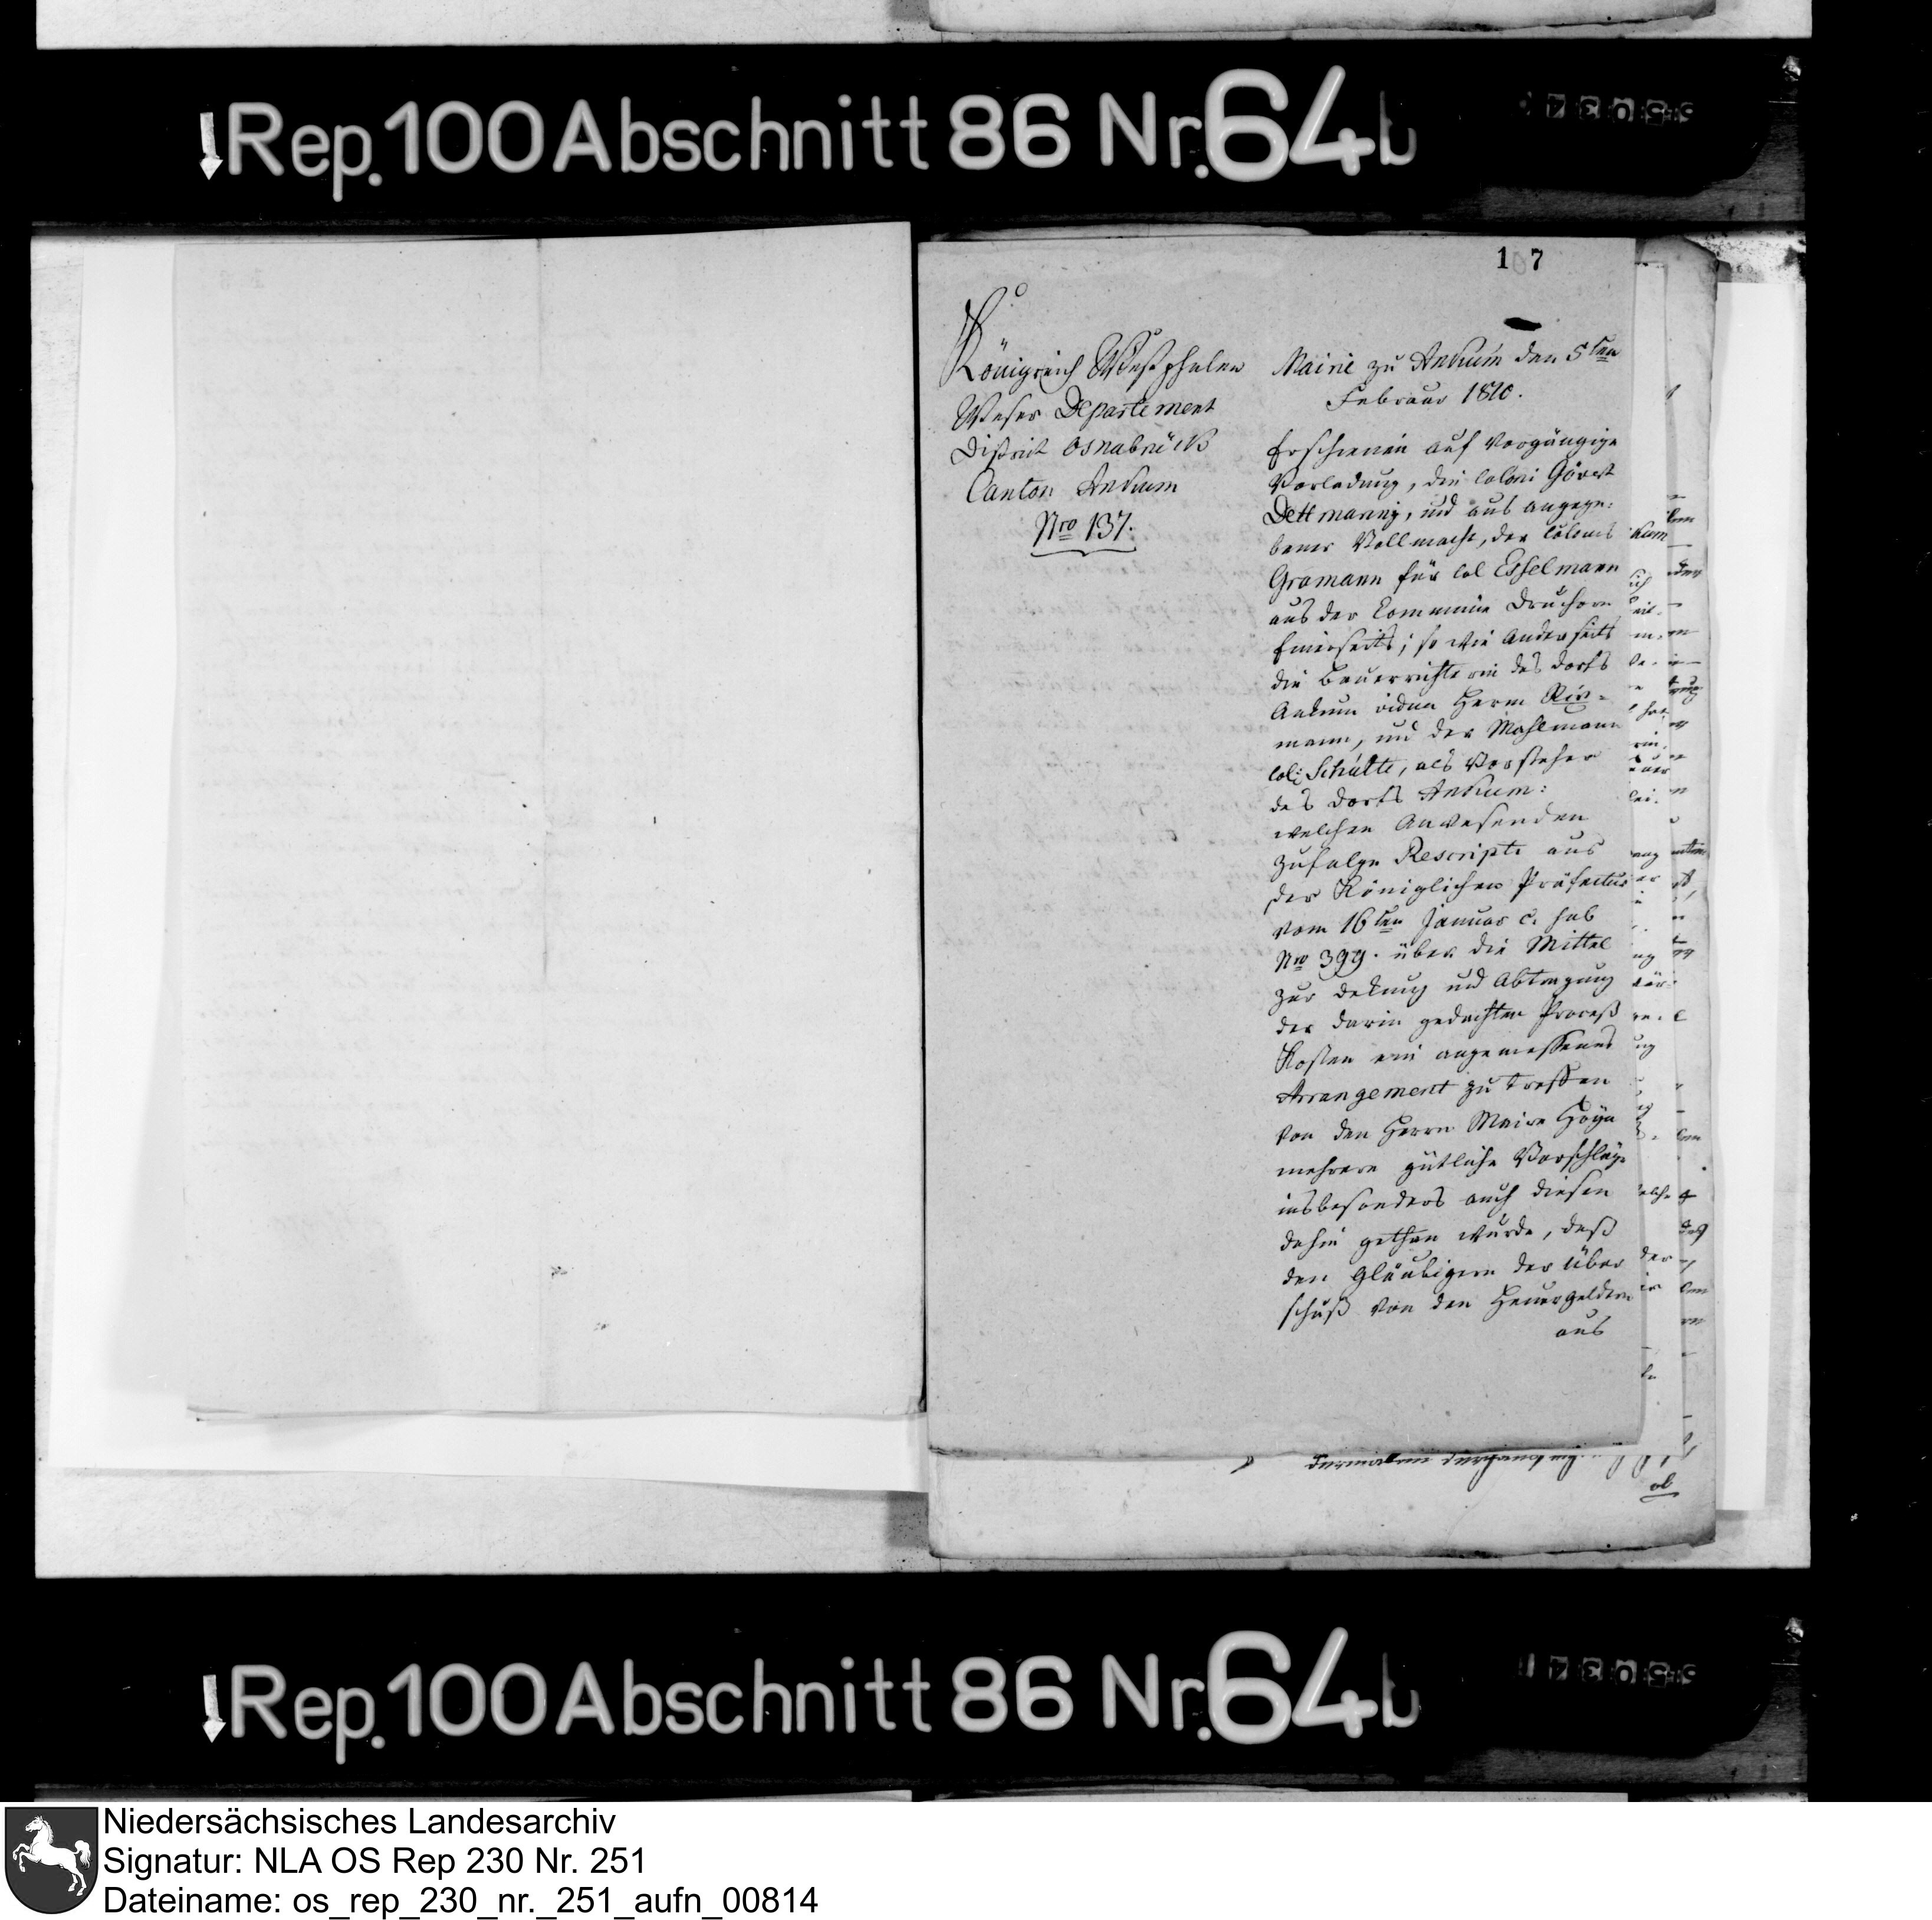 Rep. 100 Abschnitt 86 Nr. 64b
107
Königreich Westphalen
Weser Departement
District Osnabrück
Canton Ankum
Nro 137.
Mairie zu Ankum den 5ten
Februar 1810.
Erschienen auf Vorgängige
Vorladung, die Coloni Gövert
Dettmaring, und aus angege-
bener Vollmacht, der Colonus
Gramann für Col Esselmann
aus der Commune Druchorn
Einerseits; so wie Anderseits
die Bauerrichterin des Dorfs
Ankum vidua Herm
mann, und der Mahlmann
Col: Schütte, als Vorsteher
des Dorfs Ankum:
welchen Anwesenden
zufolge Rescripti aus
der Königlichen Präfectur
vom 16ten Januar c. sub
Nro 399. über die Mittel
zur dekung und Abtragung
der darin gedachten Proceß
Kosten ein angemessenes
Arrangement zu treffen
von den Herrn Maire Höye
mehrere gütliche Vorschläge
insbesonders auch diesen
dahin gethan wurde, daß
den Gläubigern der Über
schuß von den Heuergeldern
aus
ob
Rep. 100 Abschnitt 86 Nr. 64b
Niedersächsisches Landesarchiv
Signatur: NLA OS Rep 230 Nr. 251
Dateiname: os_rep_230_nr._251_aufn_00814